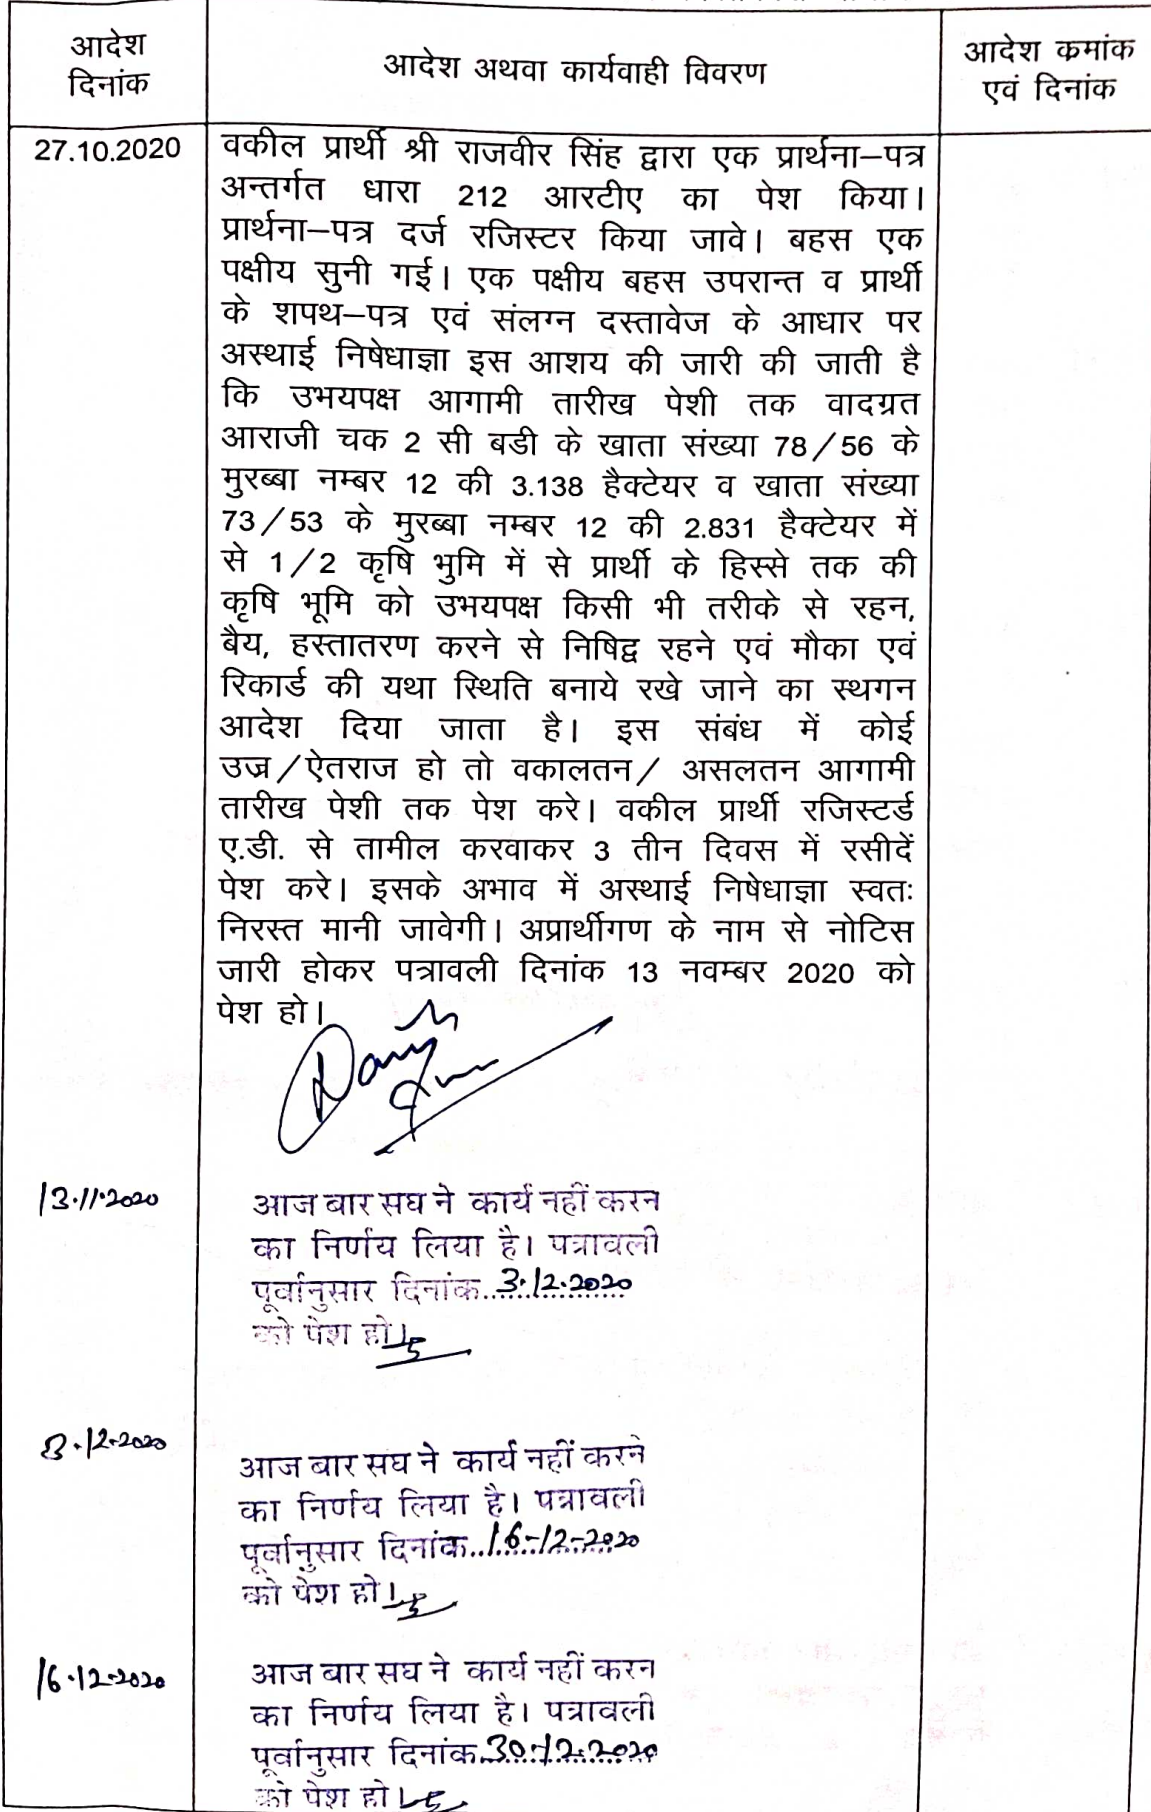 आदेश
दिनांक
आदेश अथवा कार्यवाही विवरण
आदेश कमांक
एवं दिनांक
27.10.2020
वकील प्रार्थी श्री राजवीर सिंह द्वारा एक प्रार्थना–पत्र
अन्तर्गत धारा 212 आरटीए का पेश किया।
प्रार्थना–पत्र दर्ज रजिस्टर किया जावे। बहस एक
पक्षीय सुनी गई। एक पक्षीय बहस उपरान्त व प्रार्थी
के शपथ–पत्र एवं संलग्न दस्तावेज के आधार पर
अस्थाई निषेधाज्ञा इस आशय की जारी की जाती है
कि उभयपक्ष आगामी तारीख पेशी तक वादग्रत
आराजी चक 2 सी बडी के खाता संख्या 78/56 के
मुरब्बा नम्बर 12 की 3.138 हैक्टेयर व खाता संख्या
73/53 के मुरब्बा नम्बर 12 की 2.831 हैक्टेयर में
से 1/2 कृषि भुमि में से प्रार्थी के हिस्से तक की
कृषि भूमि को उभयपक्ष किसी भी तरीके से रहन,
बैय, हस्तातरण करने से निषिद्व रहने एवं मौका एवं
रिकार्ड की यथा स्थिति बनाये रखे जाने का स्थगन
आदेश दिया जाता है। इस संबंध में कोई
उज्र/ऐतराज हो तो वकालतन/ असलतन आगामी
तारीख पेशी तक पेश करे। वकील प्रार्थी रजिस्टर्ड
ए.डी. से तामील करवाकर 3 तीन दिवस में रसीदें
पेश करे। इसके अभाव में अस्थाई निषेधाज्ञा स्वतः
निरस्त मानी जावेगी। अप्रार्थीगण के नाम से नोटिस
जारी होकर पत्रावली दिनांक 13 नवम्बर 2020 को
पेश हो।
13.11.2020
आज बार सघ ने कार्य नहीं करन
का निर्णय लिया है। पत्रावली
पूर्वानुसार दिनांक..3.12.2020
को पेश हो।
3.12.2020
आज बार सघ ने कार्य नहीं करने
का निर्णय लिया है। पत्रावली
पूर्वानुसार दिनांक..16-12-2020
को पेश हो।
16.12.2020
आज बार सघ ने कार्य नहीं करन
का निर्णय लिया है। पत्रावली
पूर्वानुसार दिनांक.30.12.2020
को पेश हो।